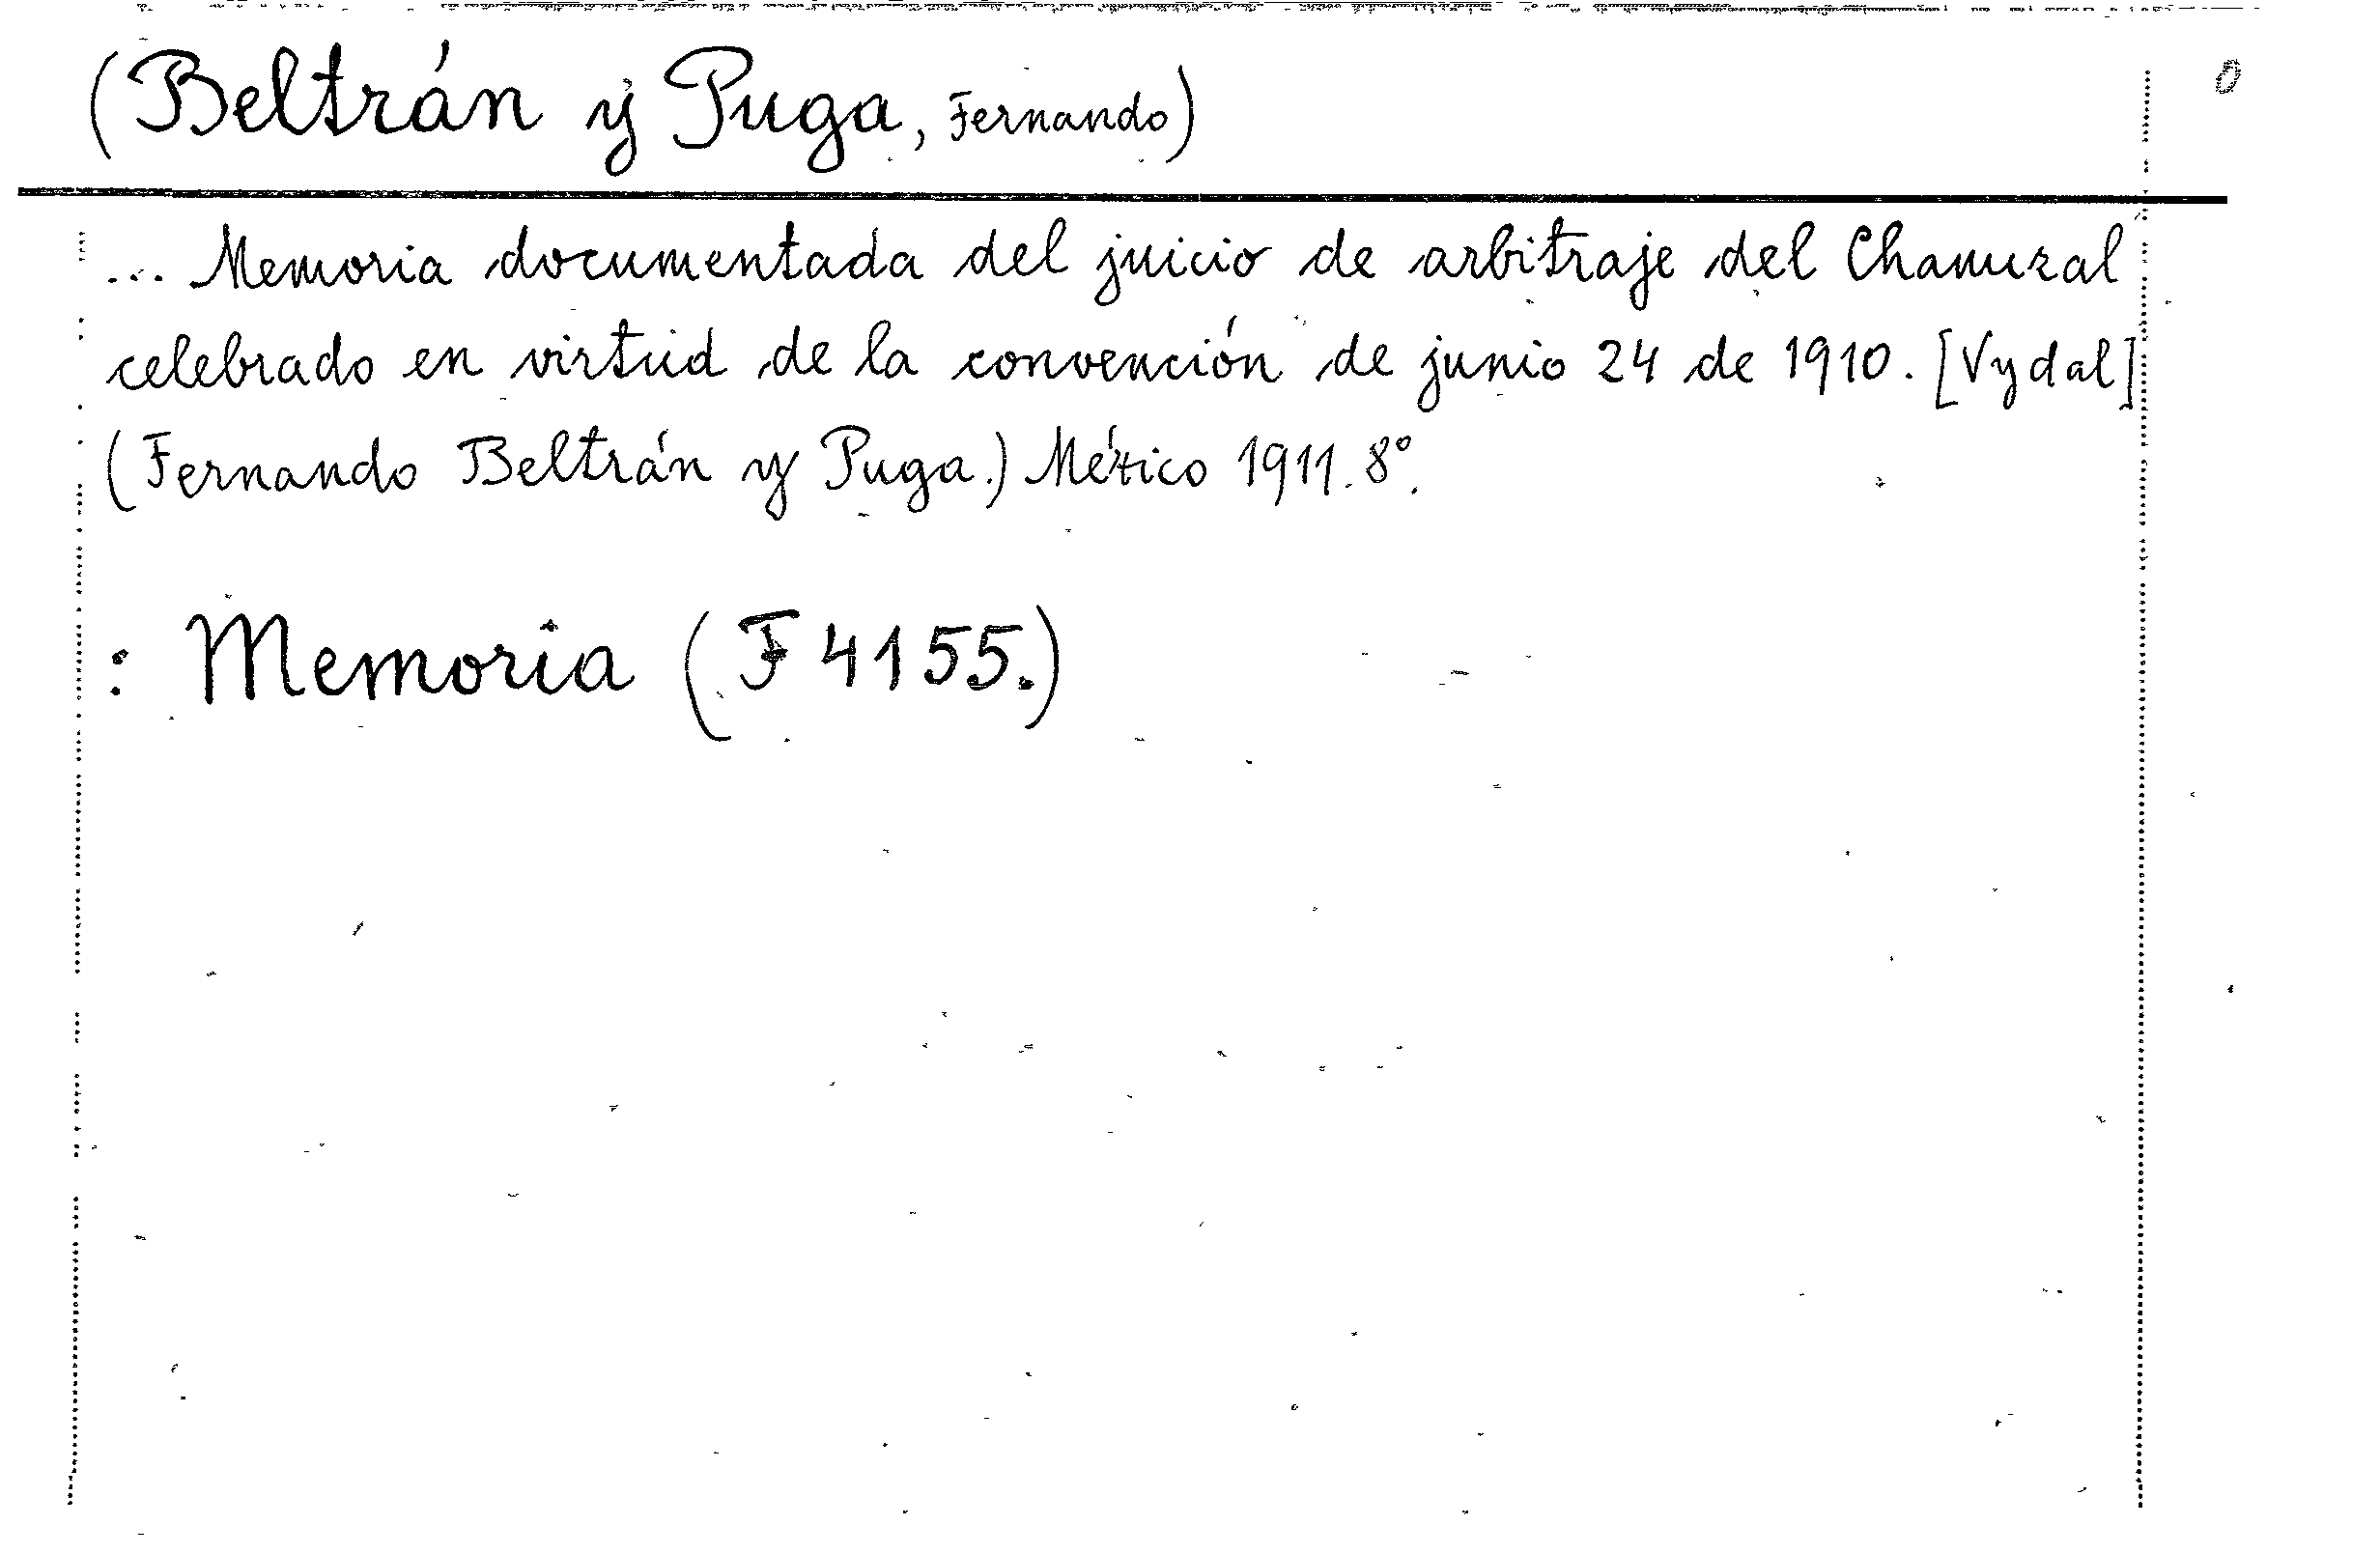 (Beltrán y Puga, Fernando)
0
... Memoria documentada del juicio de arbitraje del Chamizal
celebrado en virtud de la convención de junio 24 de 1910. [Vydal]
(Fernando Beltrán y Puga.) México 1911. 8°.
: Memoria (F 4155.)